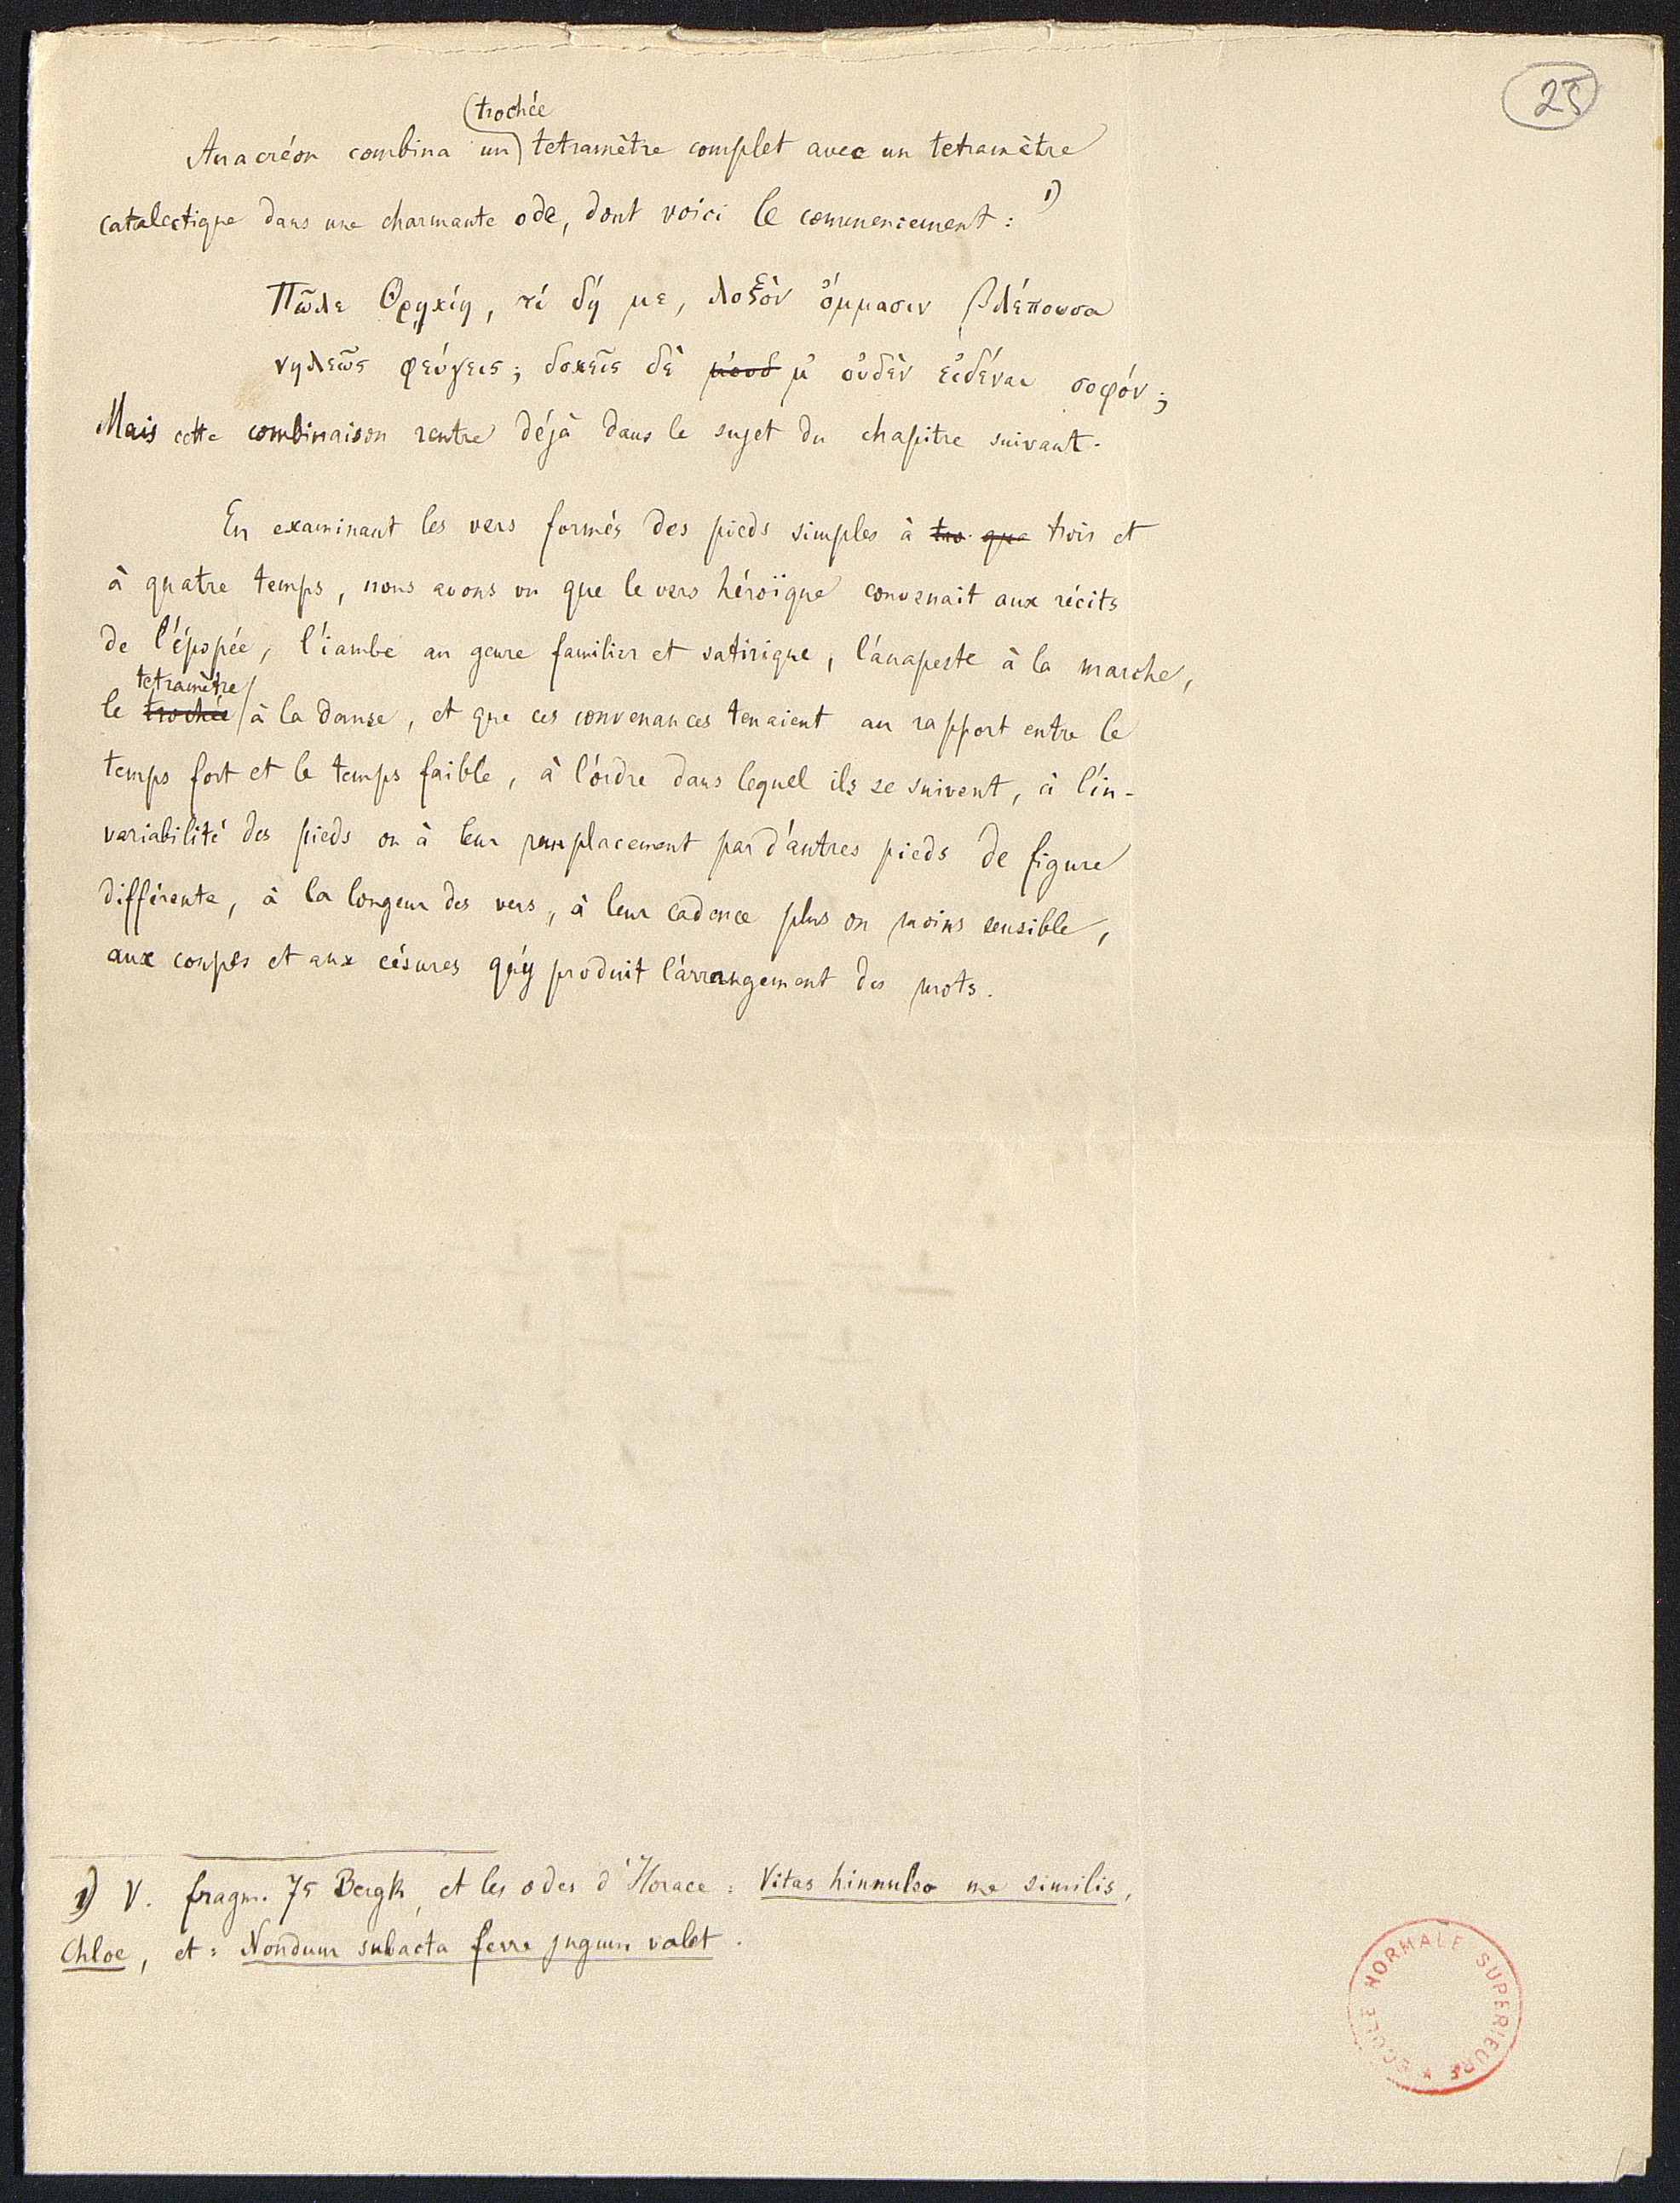 25
trochée
Anacréon combina un tetramètre complet avec un tetramètre
catalectique dans une charmante ode, dont voici le commencement : 1)
Πῶλε Θρῃκίη, τί δή με, λοξὸν ὄμμασιν βλέπουσα
νηλεῶς φεύγεις; δοκεῖς δὲ μ'ουδ μ' οὐδὲν εἰδέναι σοφόν;
Mais cette combinaison rentre déjà dans le sujet du chapitre suivant.
En examinant les vers formés des pieds simples à tro que trois et
à quatre temps, nous avons vu que le vers héroïque convenait aux récits
de l'épopée, l'iambe au genre familier et satirique, l'anapeste à la marche,
tetramètre
le trochée à la danse, et que ces convenances tenaient au rapport entre le
temps fort et le temps faible, à l'ordre dans lequel ils se suivent, à l'in-
variabilité des pieds ou à leur remplacement par d'autres pieds de figure
différente, à la longeur des vers, à leur cadence plus ou moins sensible,
aux coupes et aux césures qu'y produit l'arrangement des mots.
1) V. fragm. 75 Bergk, et les odes d'Horace : Vitas hinnuleo me similis,
Chloe, et : Nondum subacta ferre jugum valet.
ECOLE NORMALE SUPERIEURE *